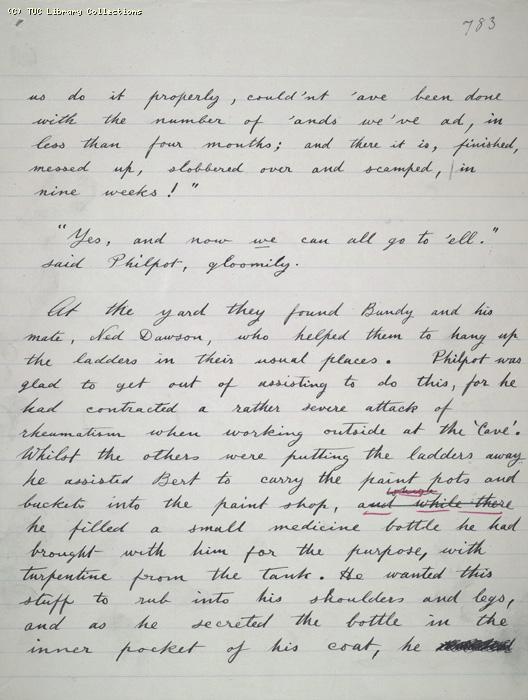 (C) TUC Library Collections
783
us do it properly, could'nt 'ave been done
with the number of 'ands we've ad, in
less than four months; and there it is, finished,
messed up, slobbered over and scamped, in
nine weeks!"
"Yes, and now we can all go to 'ell."
said Philpot, gloomily.
At the yard they found Bundy and his
mate, Ned Dawson, who helped them to hang up
the ladders in their usual places. Philpot was
glad to get out of assisting to do this, for he
had contracted a rather severe attack of
rheumatism when working outside at the 'Cave'.
Whilst the others were putting the ladders away
he assisted Bert to carry the paint pots and
buckets into the paint shop, and while there
he filled a small medicine bottle he had
brought with him for the purpose, with
turpentine from the tank. He wanted this
stuff to rub into his shoulders and legs,
and as he secreted the bottle in the
inner pocket of his coat, he